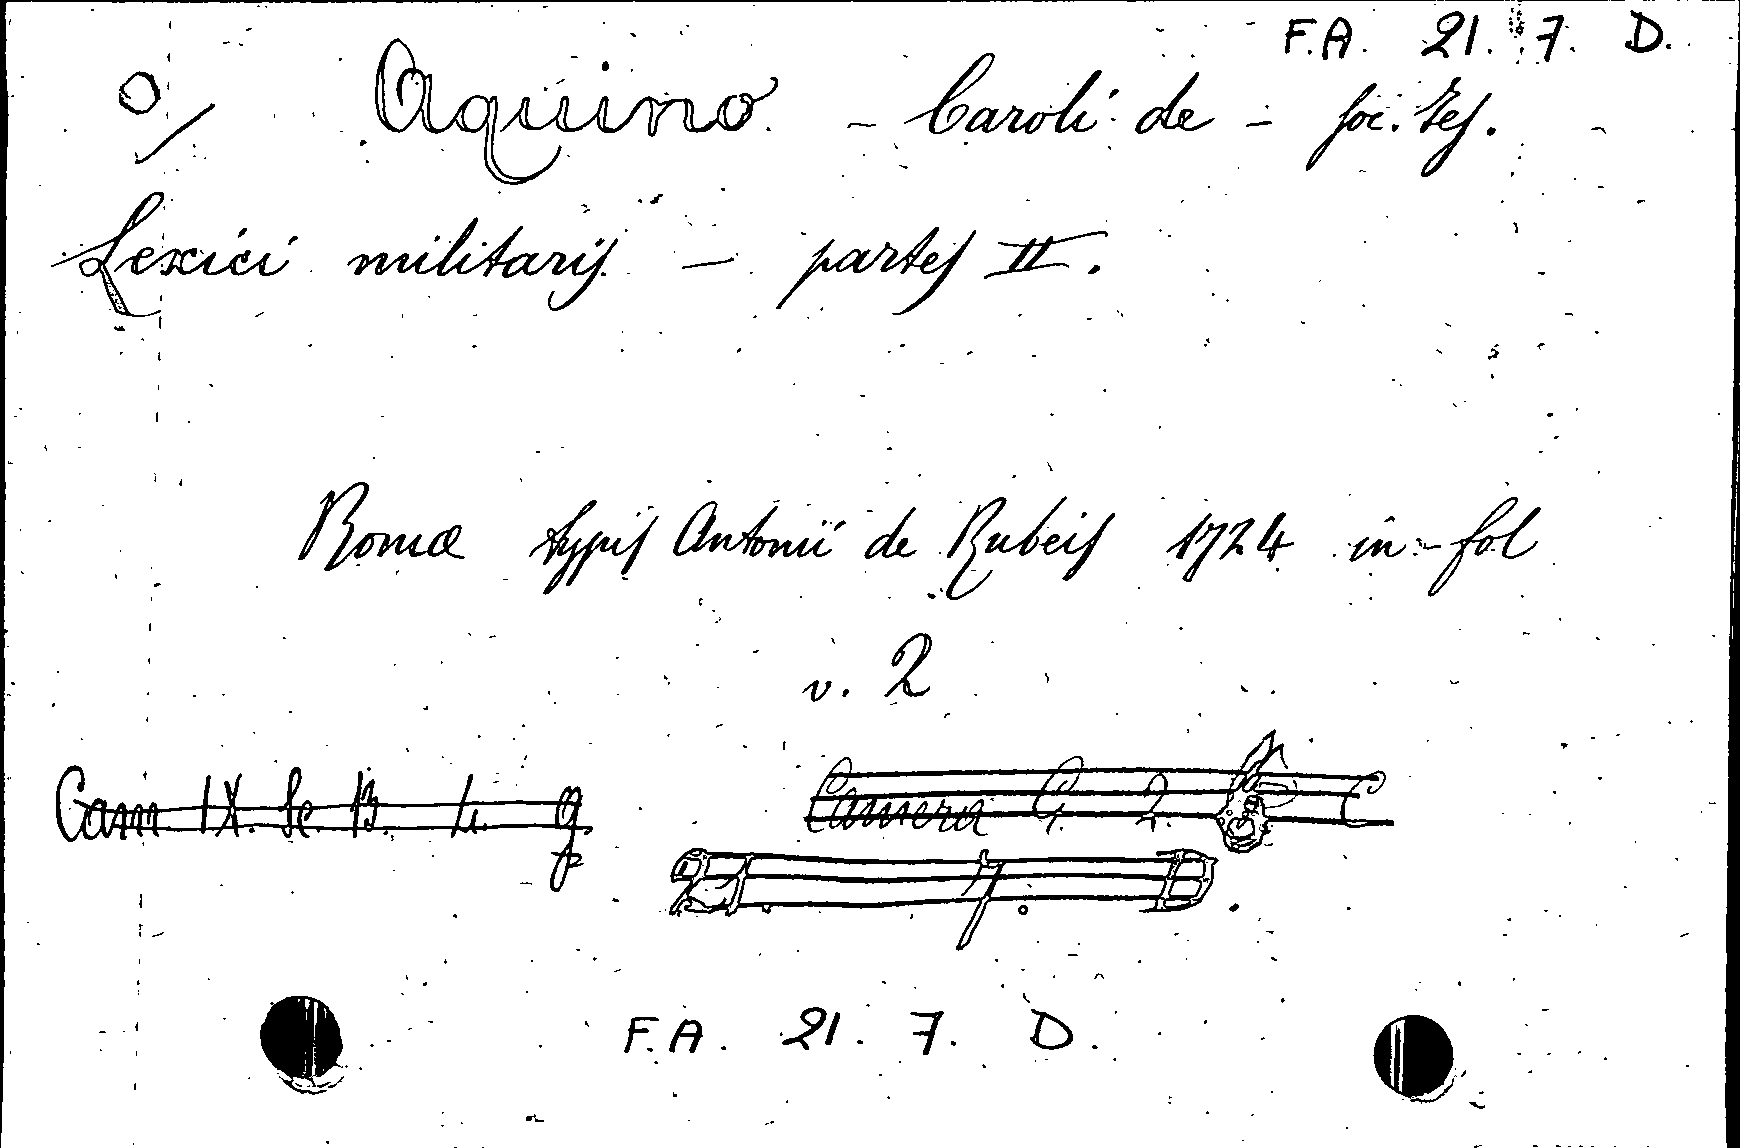 F.A. 21. 7. D.
Aquino - Caroli de - soc. Jes.
Lexici militaris - partes II.
Romæ typis Antonii de Rubeis 1724 in-fol
v. 2
Cam IX. Sc. B. 4. g. Camera G. 2. C
21 7. D.
F.A. 21. 7. D.